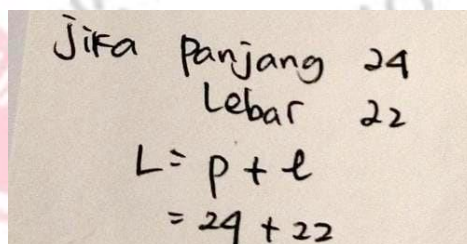 Jika panjang 24
Lebar 22
L = p + l
= 24 + 22